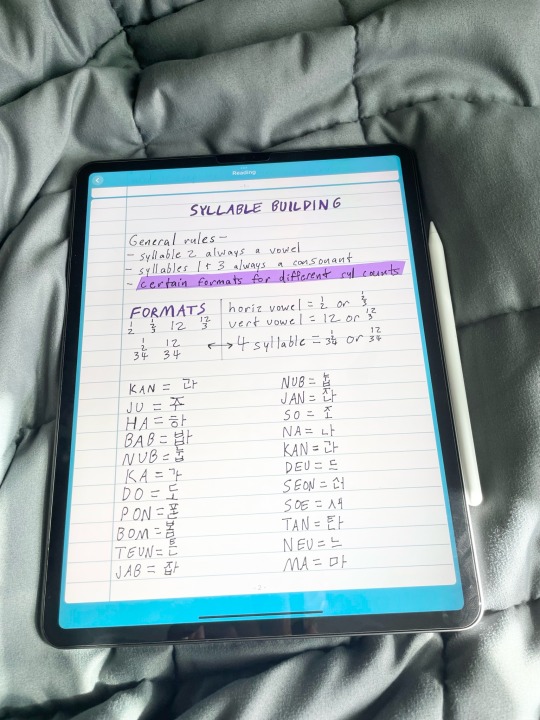 Reading
SYLLABLE BUILDING
General rules-
- syllable 2 always a vowel
- syllables 1+3 always a consonant
- certain formats for different syl counts
FORMATS
1 2 1 2 3 12 12 3
1 2 34 12 34
horiz vowel = 1 2 or 1 2 3
vert vowel = 12 or 12 3
↔ 4 syllable = 1 2 34 or 12 34
KAN = 간
JU = 주
HA = 하
BAB = 밥
NUB = 눕
KA = 가
DO = 도
PON = 폰
BOM = 봄
TEUN = 튼
JAB = 잡
NUB = 눕
JAN = 잔
SO = 소
NA = 나
KAN = 간
DEU = 드
SEON =
SOE =
TAN = 탄
NEU = 느
MA = 마